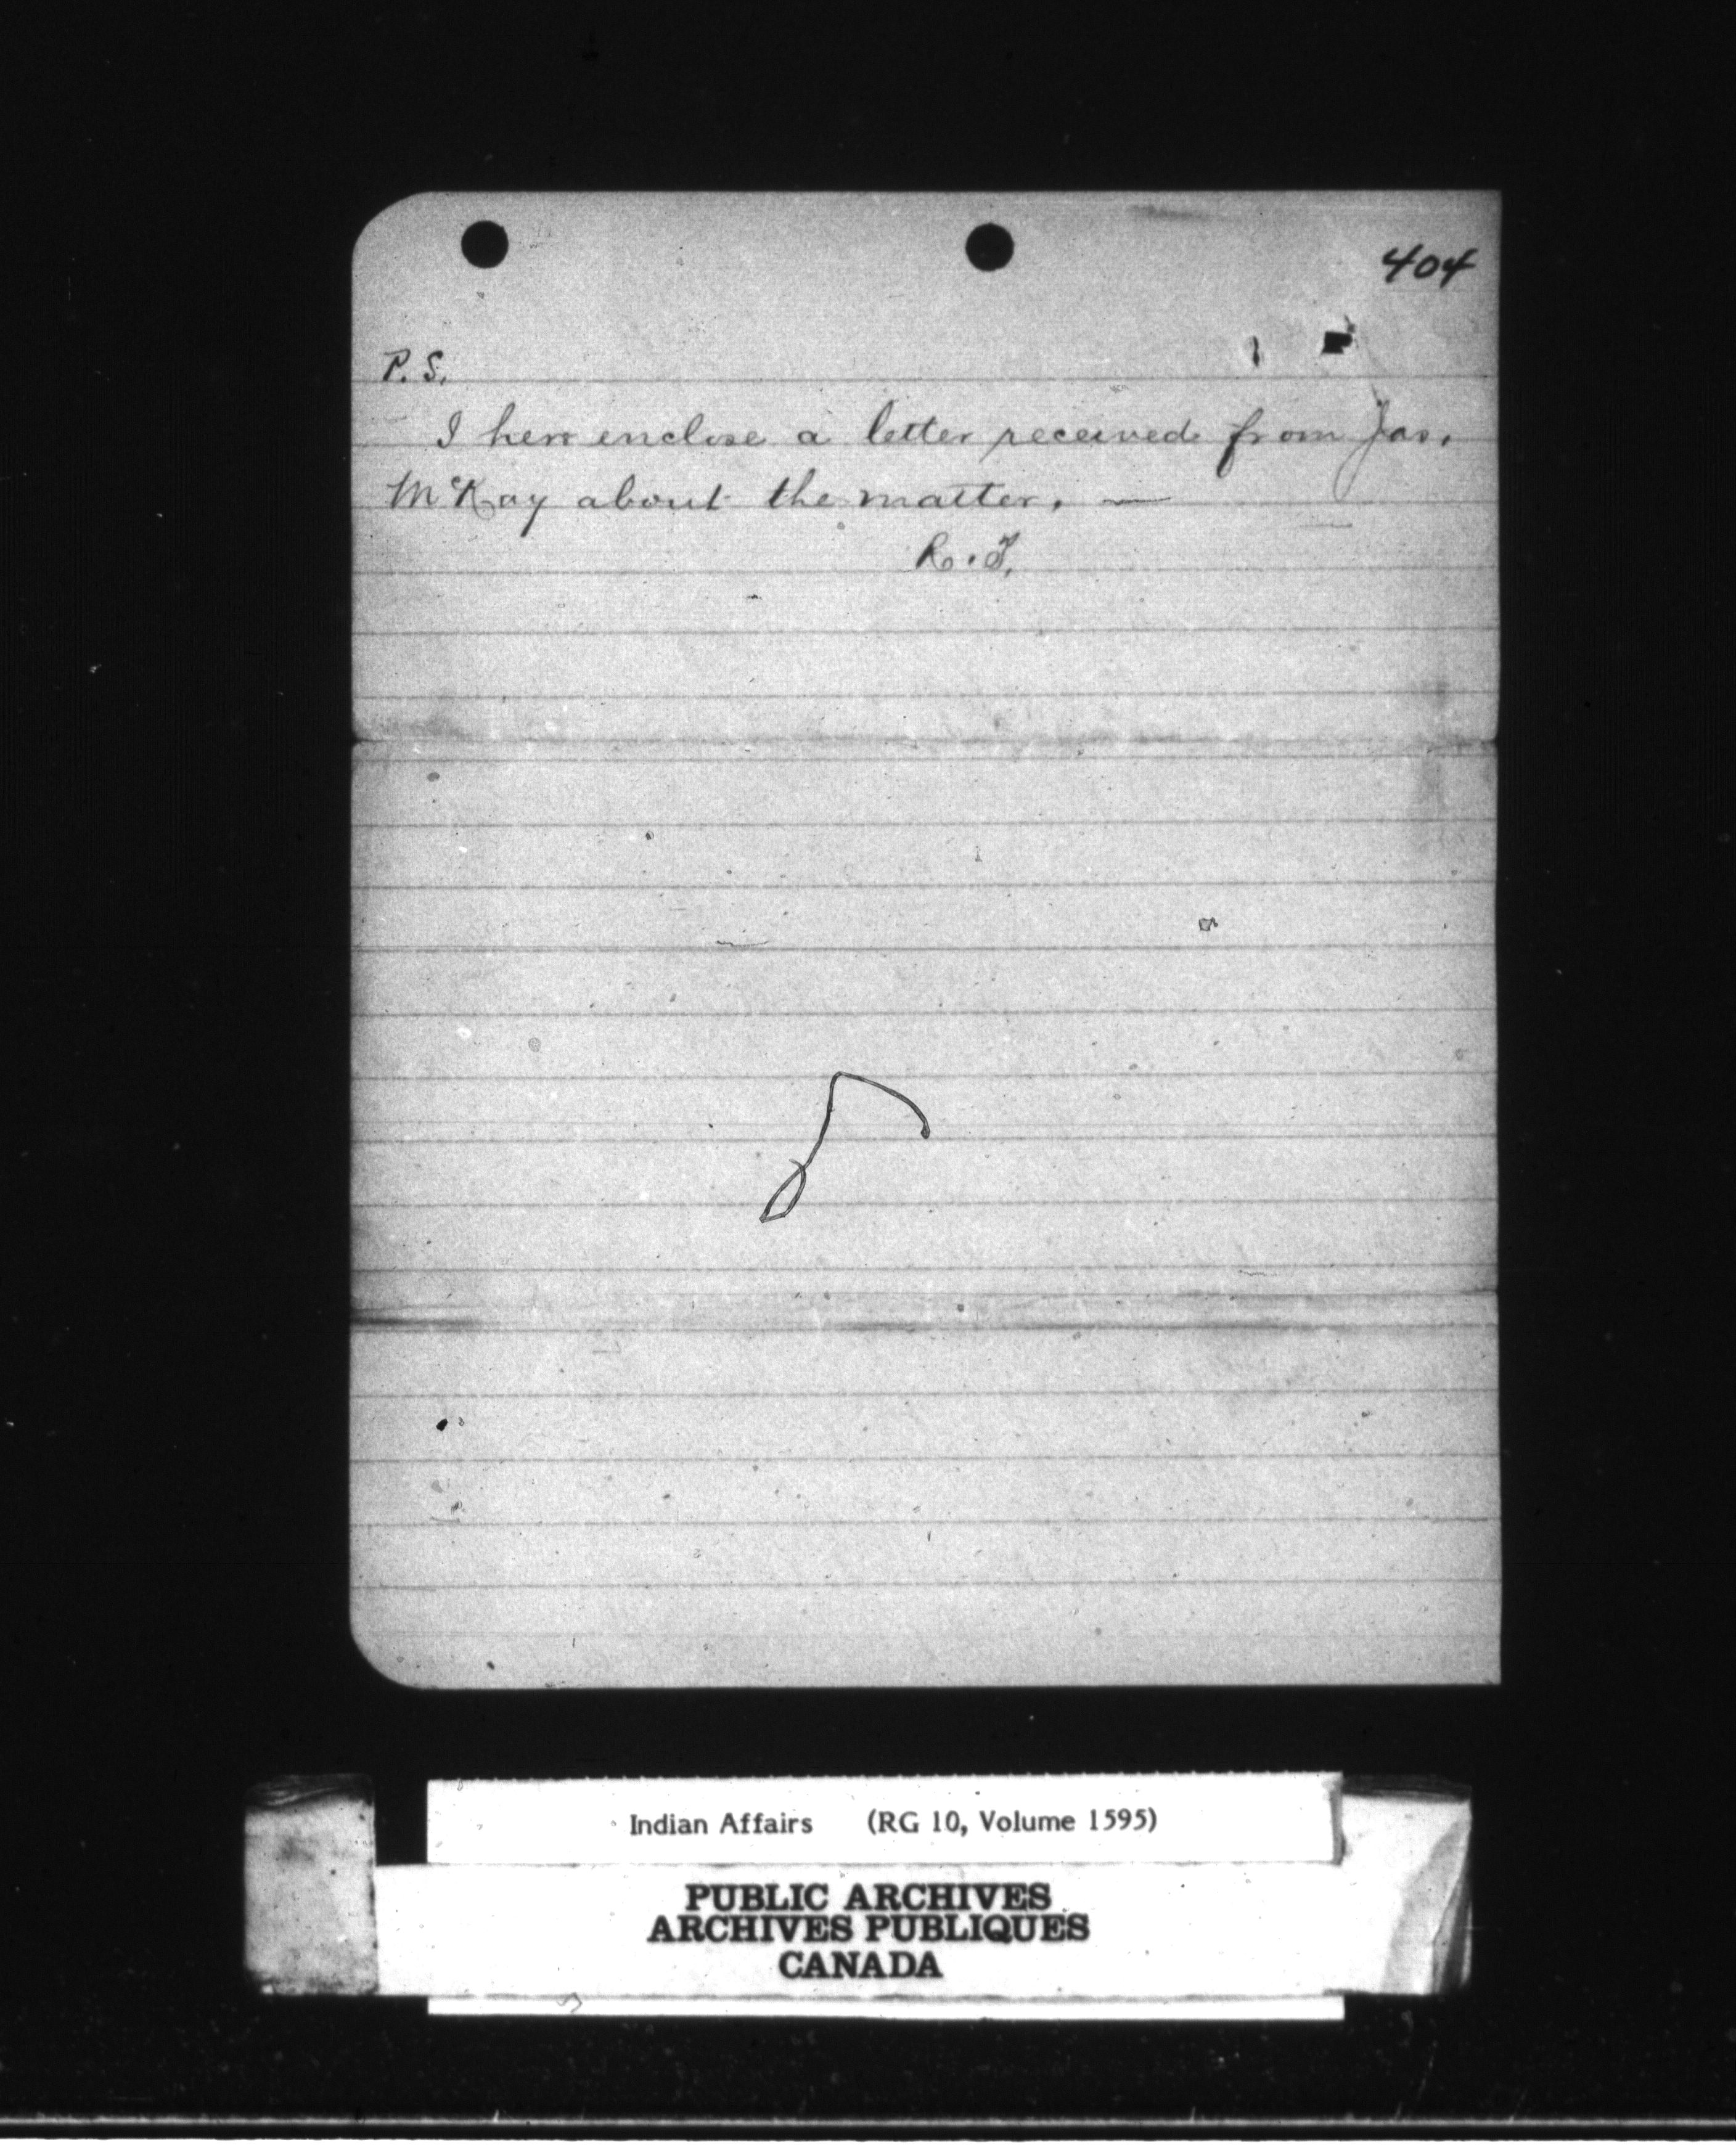 404
P.S.
I here enclose a letter received from Jas.
McKay about the matter. —
R. T.
Indian Affairs (RG 10, Volume 1595)
PUBLIC ARCHIVES
ARCHIVES PUBLIQUES
CANADA